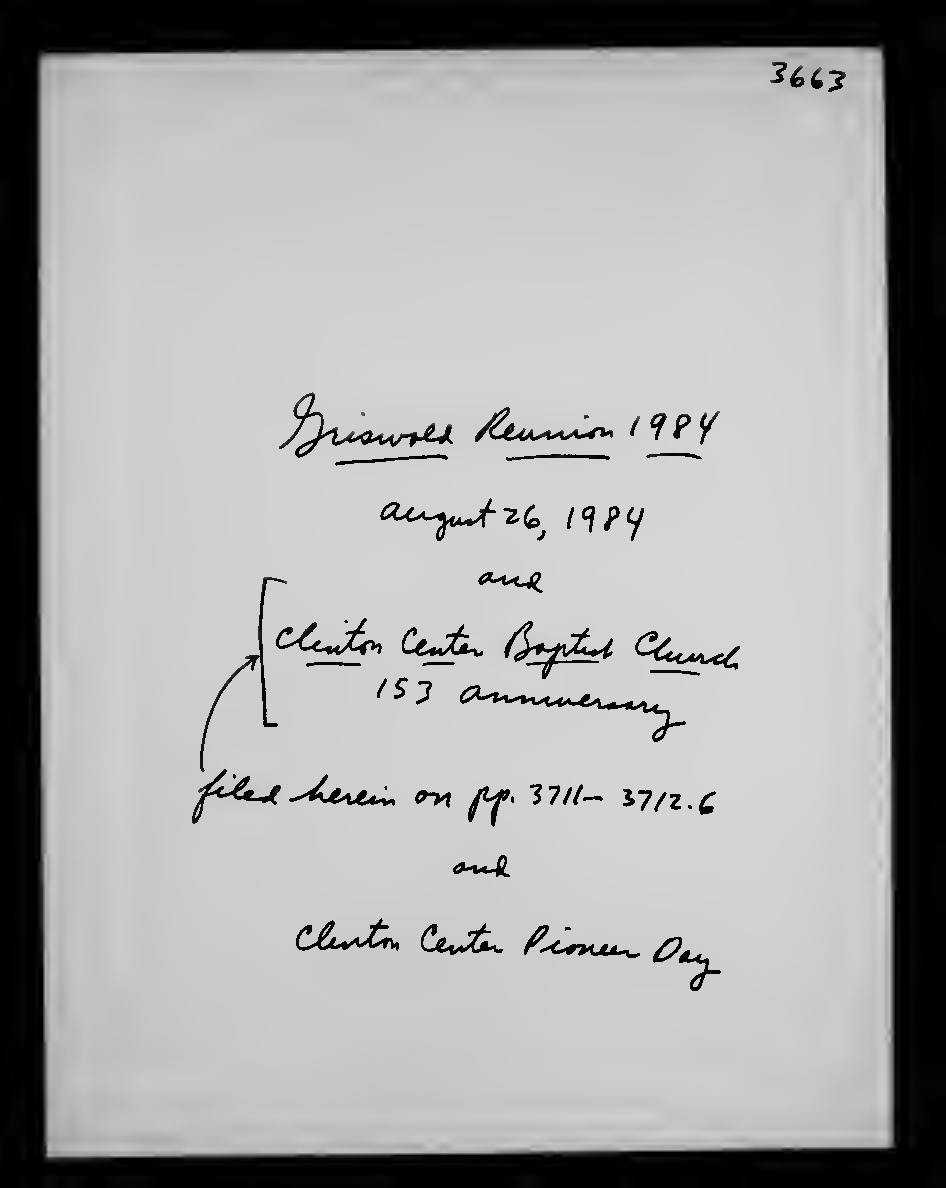 3663
Griswold Reunion 1984
August 26, 1984
and
Clinton Center Baptist Church
153 anniversary
filed herein on pp. 3711– 3712.6
and
Clinton Center Pioneer Day